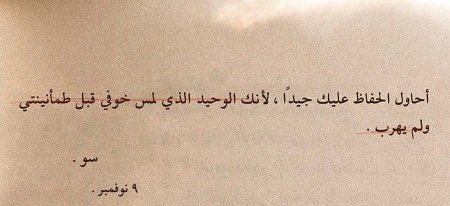 أحاول الحفاظ عليك جيدًا ، لأنك الوحيد الذي لمس خوفي قبل طمأنينتي
ولم يهرب .
سو .
٩ نوفمبر .